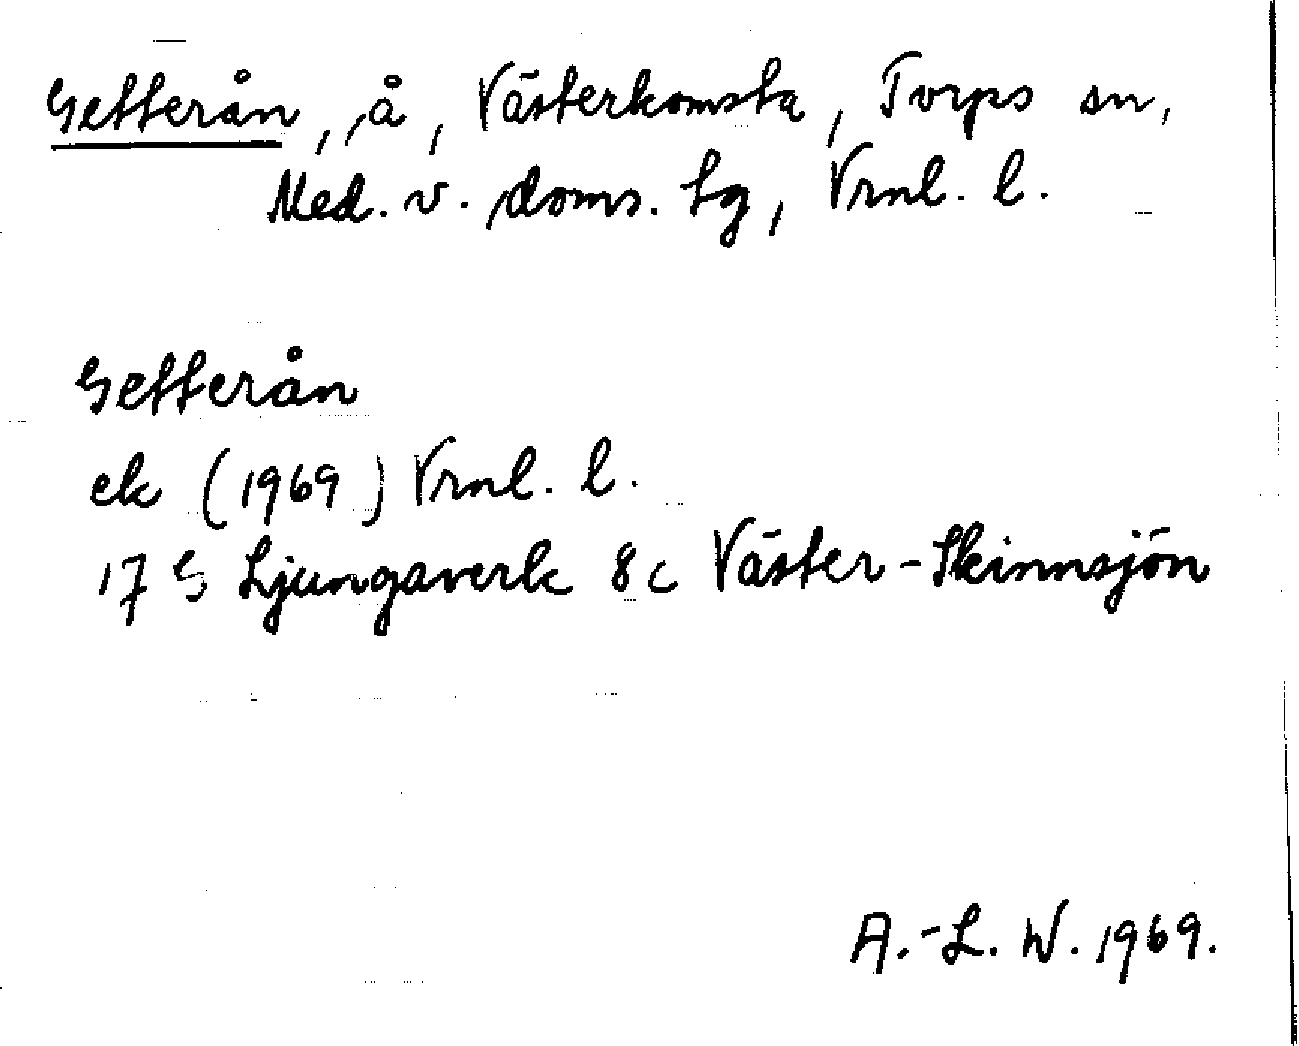 Getterån, å, Västerkomsta, Torps sn,
Med. v. doms. tg, Vrnl. l.
Getterån
ek (1969) Vrnl. l.
17 G Ljungaverk 8 c Väster-Skinnsjön
A.-L. W. 1969.